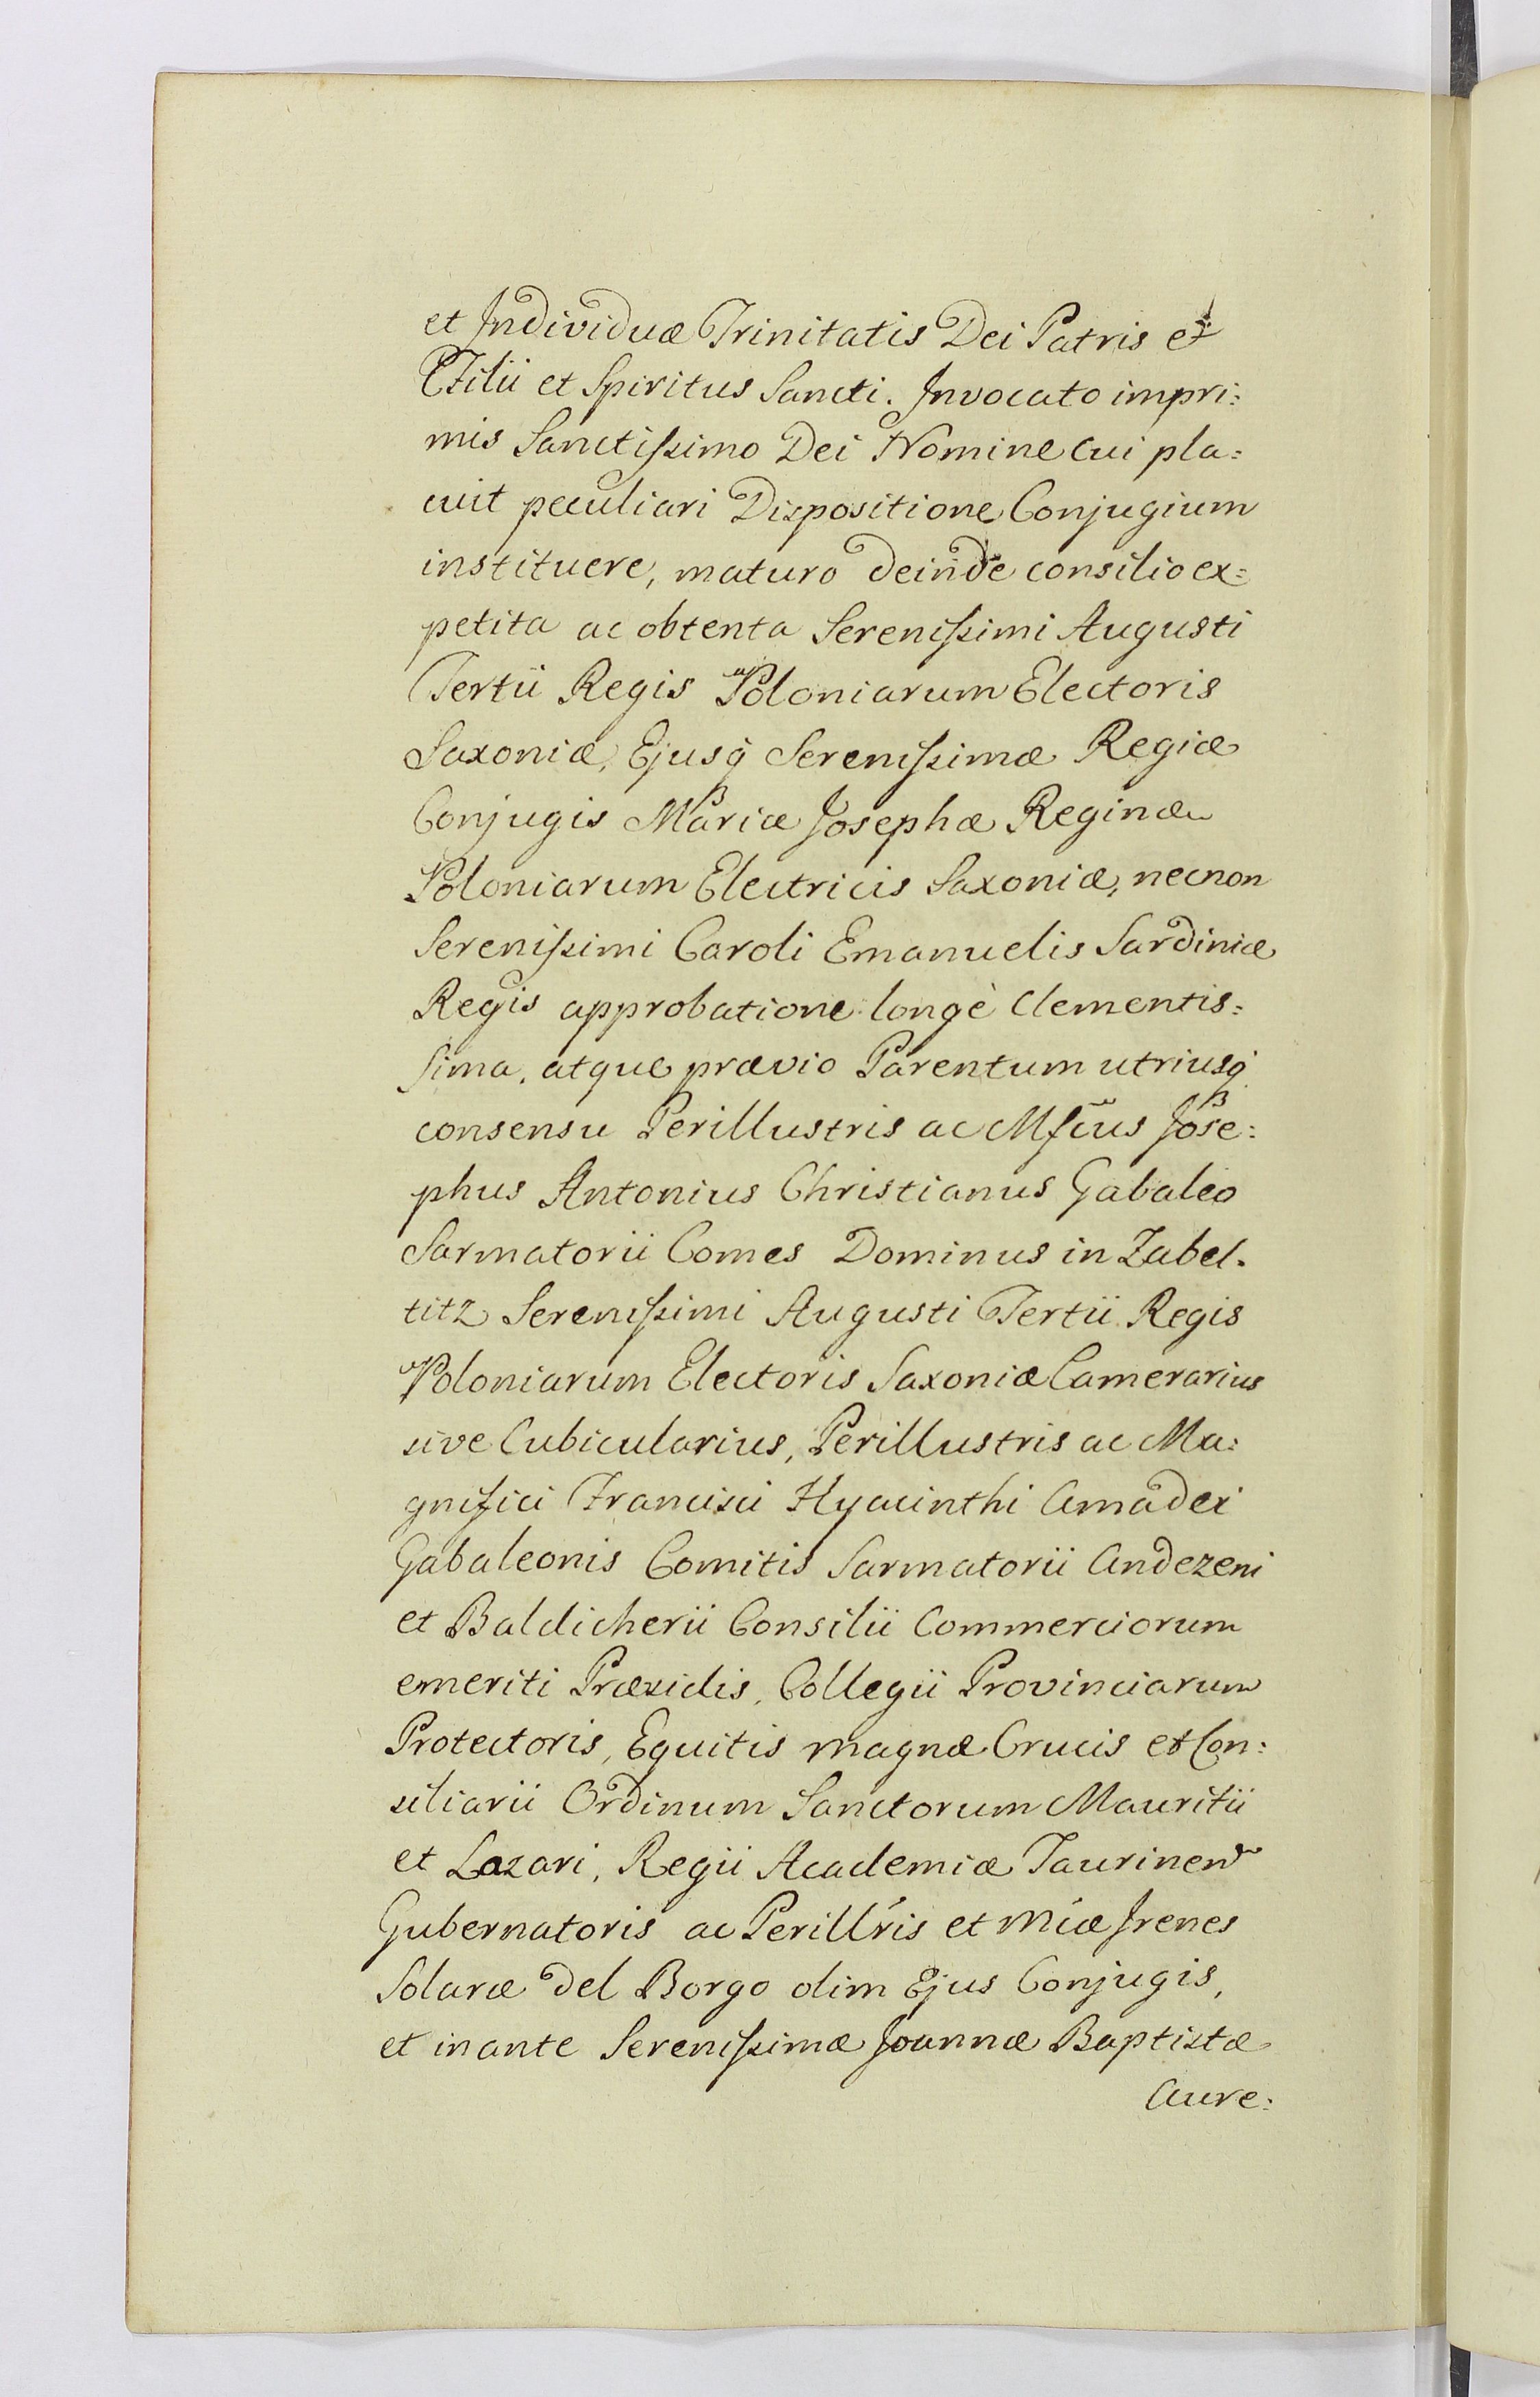 et Individuæ Trinitatis Dei Patris et
Filii et Spiritus Sancti. Invocato impri:
mis Sanctissimo Dei Nomine cui pla:
cuit peculiari Dispositione Conjugium
instituere, maturo deinde consilio ex:
petita ac obtenta Serenissimi Augusti
Tertii Regis Poloniarum Electoris
Saxoniæ, Ejusq̃ Serenissimæ Regiæ
Conjugis Mariæ Josephæ Reginæ
Poloniarum Electricis Saxoniæ, necnon
Serenissimi Caroli Emanuelis Sardiniæ
Regis approbatione longè Clementis:
sima, atque prævio Parentum utriusq̃
consensu Perillustris ac Mfc̃us Jose:
phus Antonius Christianus Gabaleo
Sarmatorii Comes Dominus in Zabel.
titz Serenissimi Augusti Tertii Regis
Poloniarum Electoris Saxoniæ Camerarius
sive Cubicularius, Perillustris ac Ma:
gnifici Francisci Hyacinthi Amadei
Gabaleonis Comitis Sarmatorii Andezeni
et Baldicherii Consilii Commerciorum
emeriti Præsidis, Collegii Provinciarum
Protectoris, Equitis magnæ Crucis et Con:
siliarii Ordinum Sanctorum Mauritii
et Lazari, Regii Academiæ Taurinen
Gubernatoris ac Perill'ris et Mcæ Irenes
Solaræ del Borgo olim Ejus Conjugis,
et inante Serenissimæ Joannæ Baptistæ
Aure: